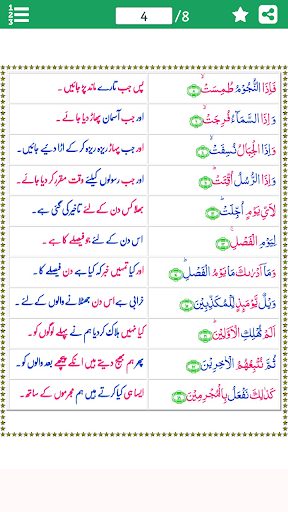 1 2 3
4 /8
فَاِذَا النُّجُوْمُ طُمِسَتْ ۙ﴿۸﴾ پس جب تارے ماند پڑ جائیں ۔
وَاِذَا السَّمَآءُ فُرِجَتْ ۙ﴿۹﴾ اور جب آسمان پھاڑ دیا جائے ۔
وَاِذَا الْجِبَالُ نُسِفَتْ ۙ﴿۱۰﴾ اور جب پہاڑ ریزہ ریزہ کر کے اڑا دیے جائیں۔
وَاِذَا الرُّسُلُ اُقِّتَتْ ؕ﴿۱۱﴾ اور جب رسولوں کیلئے وقت مقرر کر دیا جائے ۔
لِاَيِّ يَوْمٍ اُجِّلَتْ ؕ﴿۱۲﴾ بھلا کس دن کے لئے تاخیر کی گئی ہے۔
لِيَوْمِ الْفَصْلِ ۚ﴿۱۳﴾ اس دن کے لئے جو فیصلے کا ہے۔
وَمَاۤ اَدْرٰىكَ مَا يَوْمُ الْفَصْلِ ؕ﴿۱۴﴾ اور کیا تمہیں خبر کہ کیا ہے دن فیصلے کا ۔
وَيْلٌ يَّوْمَىِٕذٍ لِّلْمُكَذِّبِيْنَ ﴿۱۵﴾ خرابی ہے اس دن جھٹلانے والوں کے لئے ۔
اَلَمْ نُهْلِكِ الْاَوَّلِيْنَ ؕ﴿۱۶﴾ کیا نہیں ہلاک کر دیا ہم نے پہلے لوگوں کو ۔
ثُمَّ نُتْبِعُهُمُ الْاٰخِرِيْنَ ﴿۱۷﴾ پھر ہم بھیج دیتے ہیں انکے پیچھے بعد والوں کو ۔
كَذٰلِكَ نَفْعَلُ بِالْمُجْرِمِيْنَ ﴿۱۸﴾ ایسا ہی کیا کرتے ہیں ہم مجرموں کے ساتھ ۔